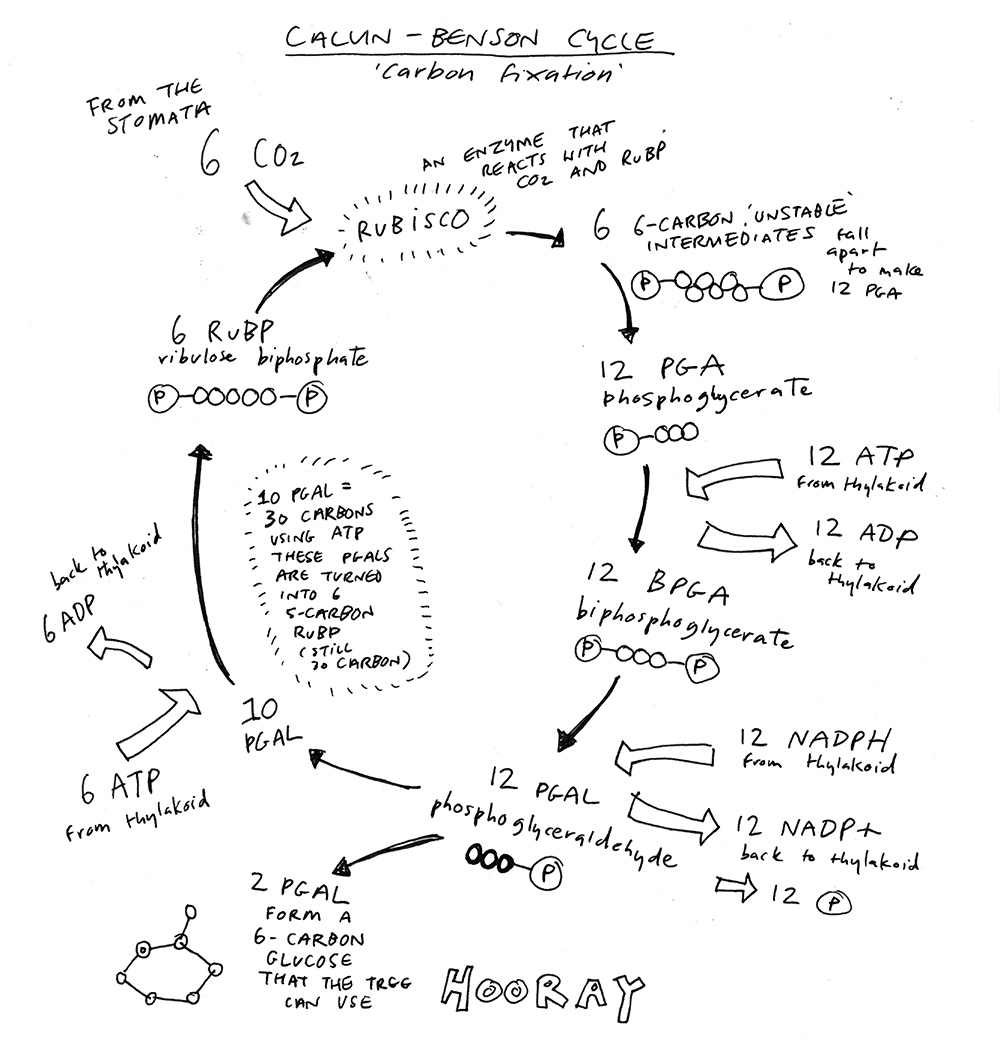 CALVIN - BENSON CYCLE
'Carbon fixation'
FROM THE
STOMATA
6 CO2
AN ENZYME THAT
REACTS WITH
CO2 AND RuBP
RUBISCO
6 6-CARBON 'UNSTABLE'
INTERMEDIATES fall
apart
to make
12 PGA
P P
6 RuBP
ribulose biphosphate
P P
12 PGA
phosphoglycerate
P
12 ATP
from thylakoid
12 ADP
back to
thylakoid
10 PGAL =
30 CARBONS
USING ATP
THESE PGALS
ARE TURNED
INTO 6
5-CARBON
RUBP
(STILL
30 CARBON)
back to
thylakoid
6 ADP
12 BPGA
biphosphoglycerate
P P
10
PGAL
6 ATP
from thylakoid
12 NADPH
from thylakoid
12 PGAL
phosphoglyceraldehyde
P
12 NADP+
back to thylakoid
12 P
2 PGAL
FORM A
6-CARBON
GLUCOSE
THAT THE TREE
CAN USE
HOORAY